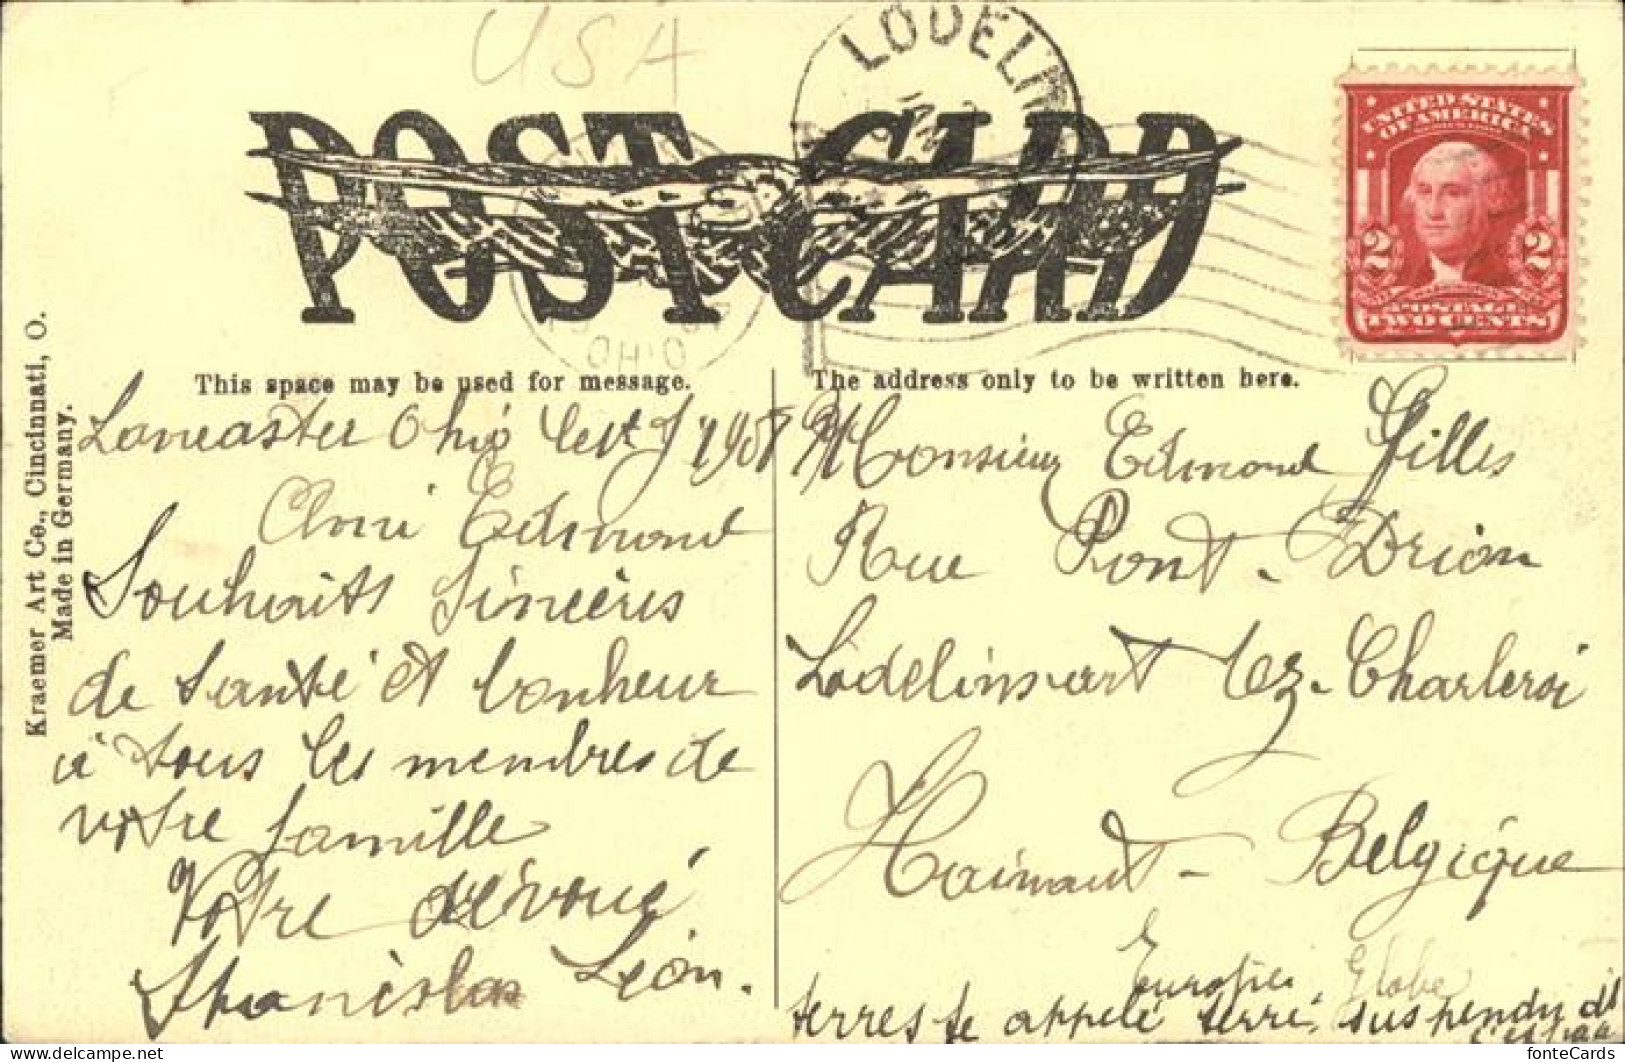 USA
LODELIN
POST CARD
OHIO
UNITED STATES
OF AMERICA
2 2
POSTAGE
TWO CENTS
Kraemer Art Co., Cincinnati, O.
Made in Germany.
This space may be used for message.
Lancaster Ohio 1908
Edmond
Souhaits Sincères
de Santé et bonheur
à tous les membres de
votre famille
Votre dévoué
Stanislas Léon.
The address only to be written here.
Monsieur Edmond Gilles
Rue Pont-Drion
Lodelinsart lez-Charleroi
Hainaut - Belgique
Europe Globe
terrestre appelé terre, suspendu
fonteCards